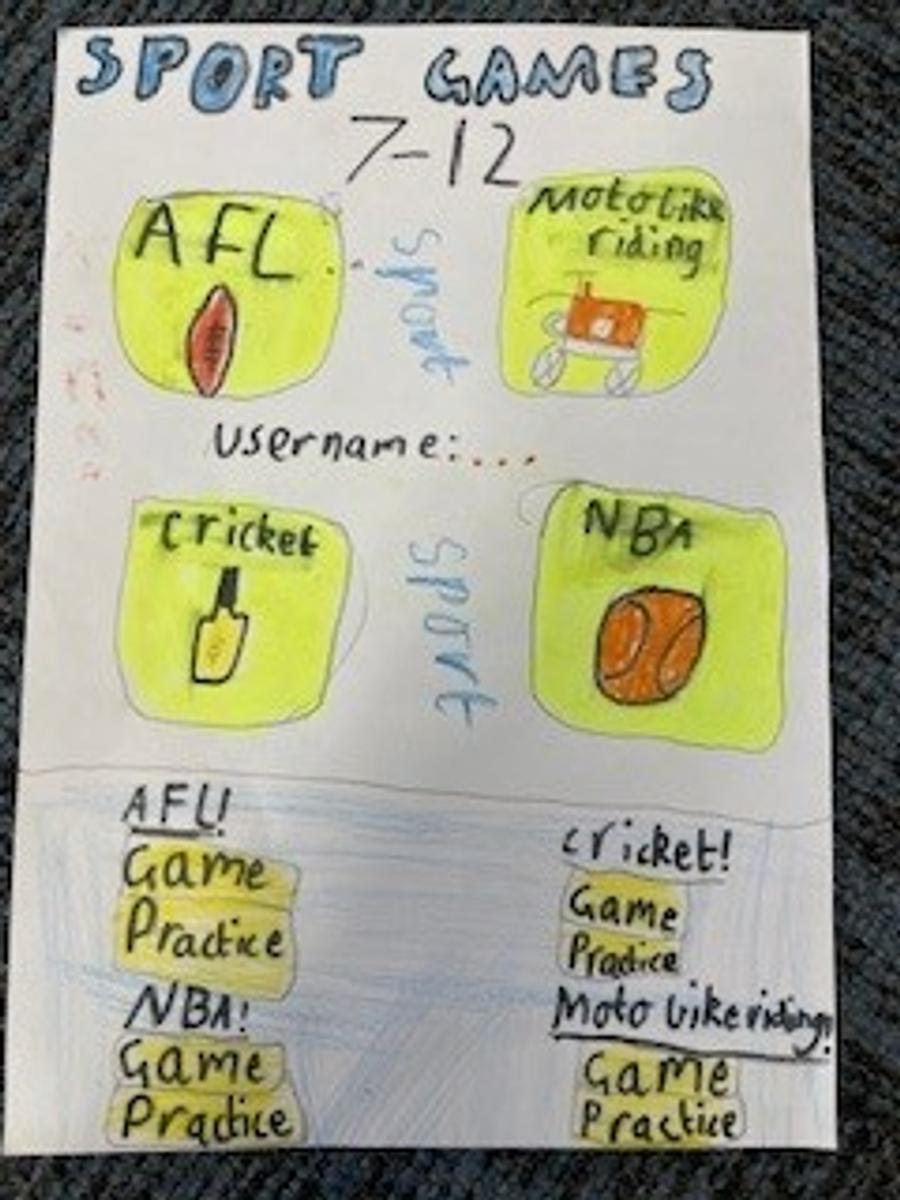 SPORT GAMES
7-12
AFL
Sport
Motobike
riding
username:...
cricket
Sport
NBA
AFL!
Game
Practice
NBA!
Game
Practice
cricket!
Game
Practice
Moto bike riding!
Game
Practice